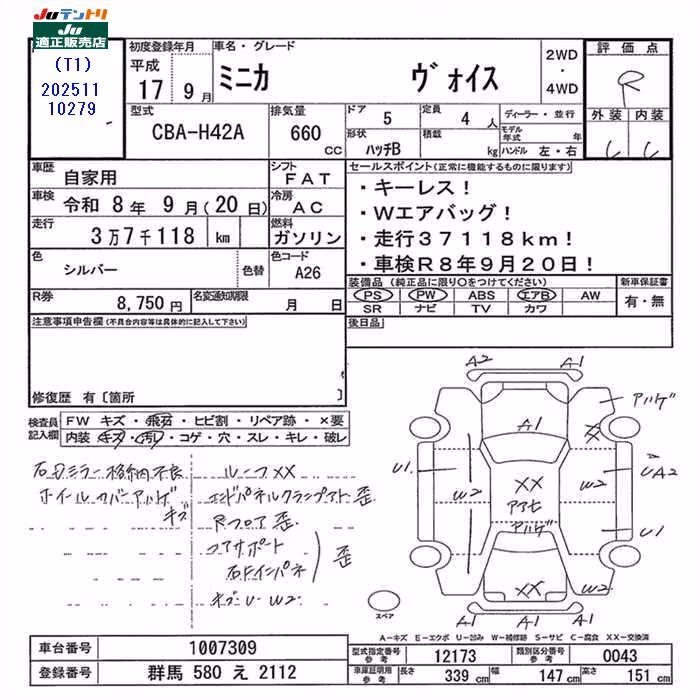 Juテントリ
Ju
適正販売店
(T1)
202511
10279
初度登録年月
平成
17 9月
車名・グレード
ミニカ ヴォイス
2WD
・
4WD
評価点
R
外装 内装
C C
型式
CBA-H42A
排気量
660 CC
ドア 5
定員 4 人
形状 ハッチB
積載 kg
ディーラー・並行
モデル年式 年
ハンドル 左・右
車歴 自家用
シフト FAT
車検 令和 8年 9月(20日)
冷房 AC
走行 3万7千118 km
燃料 ガソリン
色 シルバー 色替
色コード A26
R券 8,750円
名変通知期限 月 日
セールスポイント(正常に機能するものに限ります)
・キーレス!
・Wエアバッグ!
・走行37118km!
・車検R8年9月20日!
装備品(純正品に限り○をつけてください)
PS PW ABS エアB AW
SR ナビ TV カワ
新車保証書
有・無
後日品
注意事項申告欄(不具合内容等は具体的に記入して下さい)
修復歴 有〔箇所 〕
検査員
記入欄
FW キズ・飛石・ヒビ割・リペア跡・×要
内装 キズ・汚レ・コゲ・穴・スレ・キレ・破レ
右Dミラー格納不良
ホイールカバーアルゲ
キズ
ルーフXX
エンドパネルクランプアト歪
Rフロア歪
コアサポート
右ドインパネ
歪
キズ・U・W2
A2 A1 A1
アルゲ
XX
U1 W2 XX W2 UA2
アアセ
アルゲ
U1
XX W2
A1 A1
スペア
A-キズ E-エクボ U-凹み W-補修跡 S-サビ C-腐食 XX-交換済
車台番号 1007309
登録番号 群馬 580 え 2112
型式指定番号 参考 12173
類別区分番号 参考 0043
車庫証明用 参考 長さ 339 cm 幅 147 cm 高さ 151 cm